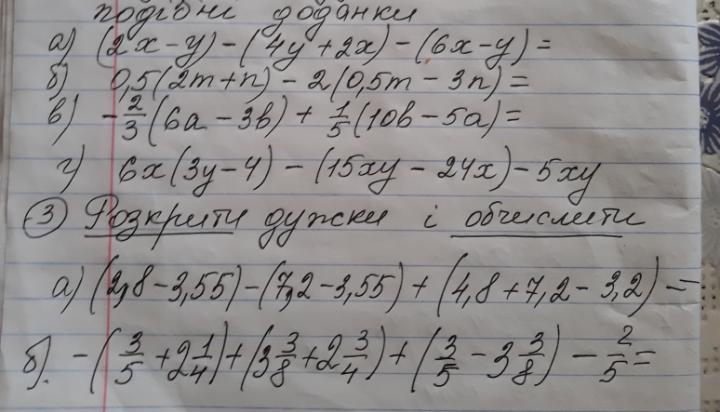 подібні доданки
а) (2x - y) - (4y + 2x) - (6x - y) =
б) 0,5(2m + n) - 2(0,5m - 3n) =
в) -2/3(6a - 3b) + 1/5(10b - 5a) =
г) 6x(3y - 4) - (15xy - 24x) - 5xy
③ Розкрити дужки і обчислити
а) (2,8 - 3,55) - (7,2 - 3,55) + (4,8 + 7,2 - 3,2) =
б). -(3/5 + 2 1/4) + (3 3/8 + 2 3/4) + (3/5 - 3 3/8) - 2/5 =